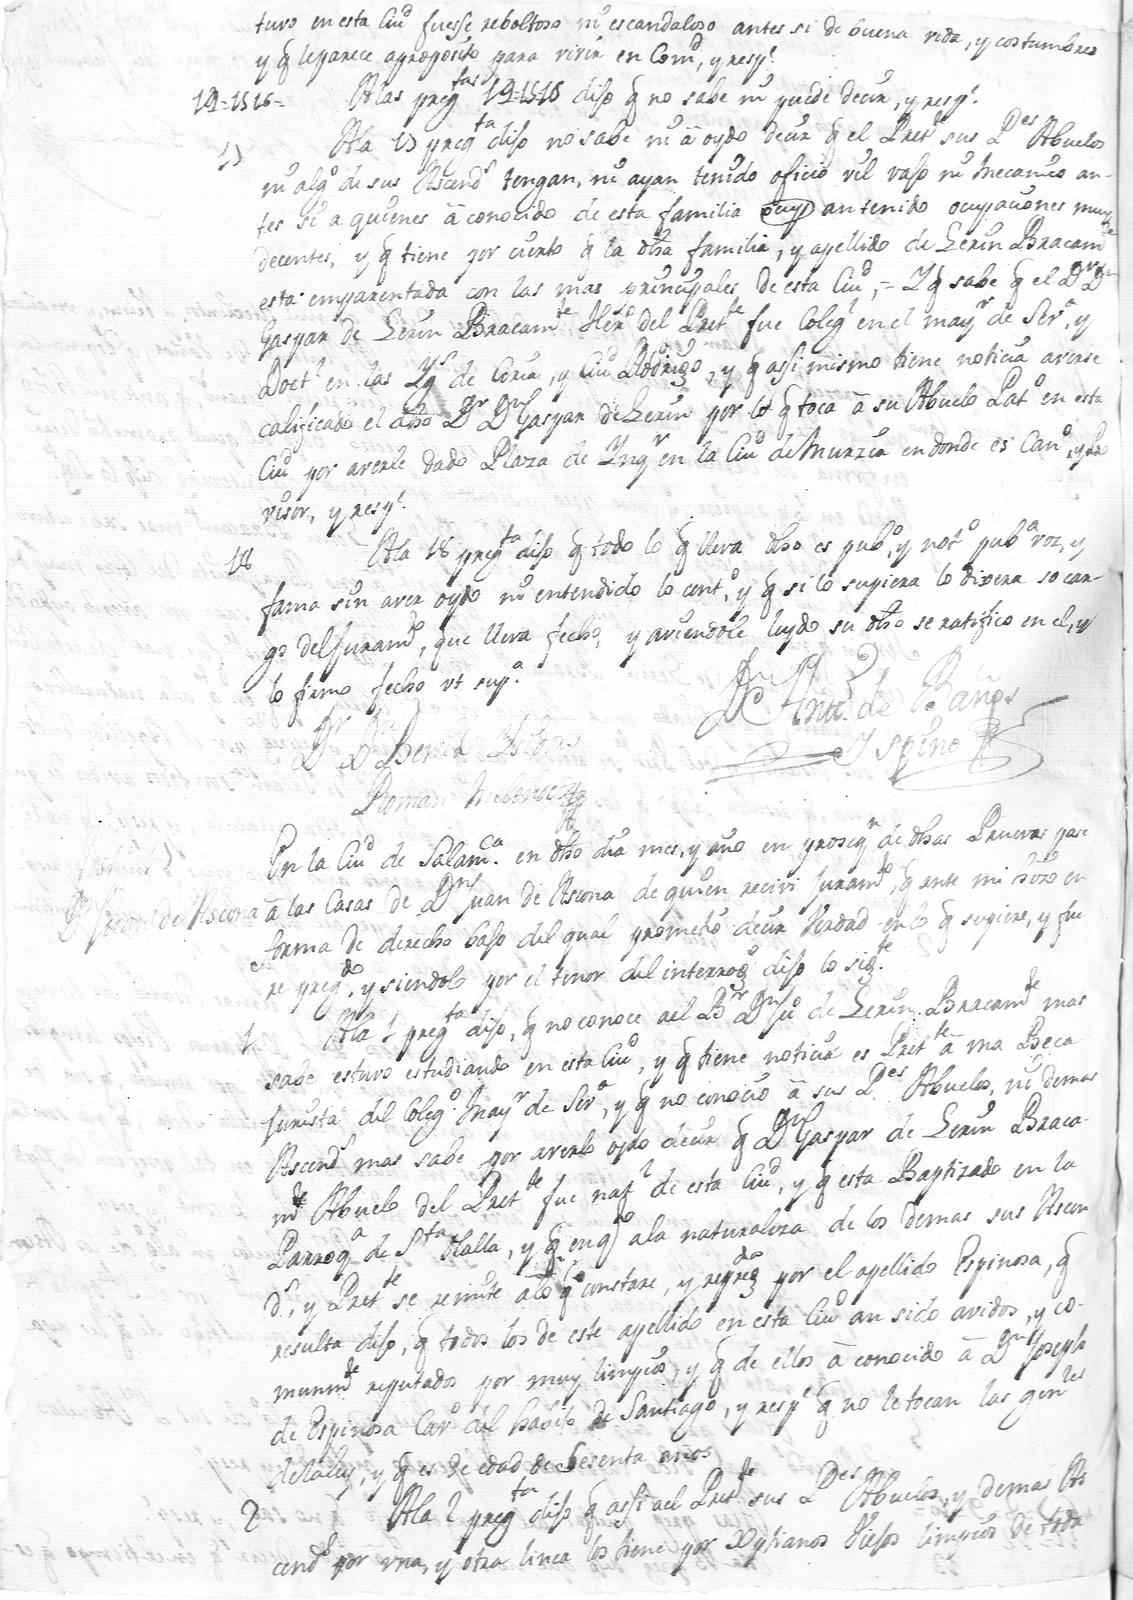 tuvo en esta Ciud fuesse reboltoso ni escandaloso antes si de buena vida, y costumbres
y q le parece aproposito para vivir en Comd, y respe.
14=15 16= A las pregtas 14=15=16 dijo q no sabe ni puede decir, y respe.
17 A la 17 pregta dijo no sabe ni â oydo decir q el Prette sus Pdes Abuelos
ni algo de sus Ascends tengan, ni ayan tenido oficio vil vajo ni Mecanico an-
tes si a quienes â conocido de esta familia ocup an tenido ocupaciones muy
decentes, y q tiene por cierto q la dha familia, y apellido de Lerin Bracamte
esta emparentada con las mas principales de esta Ciud, = Y q sabe q el Dr Dn
Gaspar de Lerin Bracamte Herno del Prette fue Colegl en el mayr de Sera, y
Doctl en las Ygs de Coria, y Ciud Rodrigo, y q assi mismo tiene noticia averse
calificado el dho Dr Dn Gaspar de Lerin por lo q toca â su Abuelo Pato en esta
Ciud por averle dado Plaza de Ynqr en la Ciud de Murzia en donde es Cano, y pro
visor, y respe.
18 A la 18 pregta dijo q todo lo q lleva dho es pubo, y noto puba voz, y
fama sin aver oydo ni entendido lo conto, y q si lo supiera lo dixera so car-
go del Juramto, que lleva fecho, y aviendole leydo su dho se ratifico en el, y
lo firmo fecho vt supa.
Dn Anto de Baños
Y spino
Dr Dn Benito
Roman Melendez
En la Ciud de Salamca en dho dia mes, y año en prosegn de dhas Pruevas pase
Dn Juan de Ascona â las Casas de Dn Juan de Ascona de quien recivi Juramto, q ante mi hizo en
forma de derecho bajo del qual prometio decir Verdad en lo q supiere, y fue
re pregdo, y siendolo por el tenor del interrog dijo lo sigte
1 A la 1 pregta dijo, q no conoce a el Br Dn Ju de Lerin Bracamte mas
sabe estuvo estudiando en esta Ciud, y q tiene noticia es Prette â vna Beca
Jurista del Colego Mayr de Sera, y q no conocio â sus Pdes Abuelos, ni demas
Ascends mas sabe por averlo oydo decir q Dn Gaspar de Lerin Braca-
mte Abuelo del Prette fue natl de esta Ciud, y q esta Baptizado en la
Parroqa de Sta Olalla, y q en qto a la naturaleza de los demas sus Ascen
ds, y Prette se remite a lo q constare, y repregdo por el apellido Espinosa, q
resulta dijo, q todos los de este apellido en esta Ciud an sido avidos, y co-
munmte reputados por muy limpios, y q de ellos â conocido â Dn Joseph
de Espinosa Cavo del habito de Santiago, y respe q no le tocan las genles
de la ley, y q es de edad de Sesenta años
2 A la 2 pregta dijo q assi a el Prette sus Pdes Abuelos, y demas As
cends por vna, y otra linea los tiene por Xptianos Viejos limpios de toda